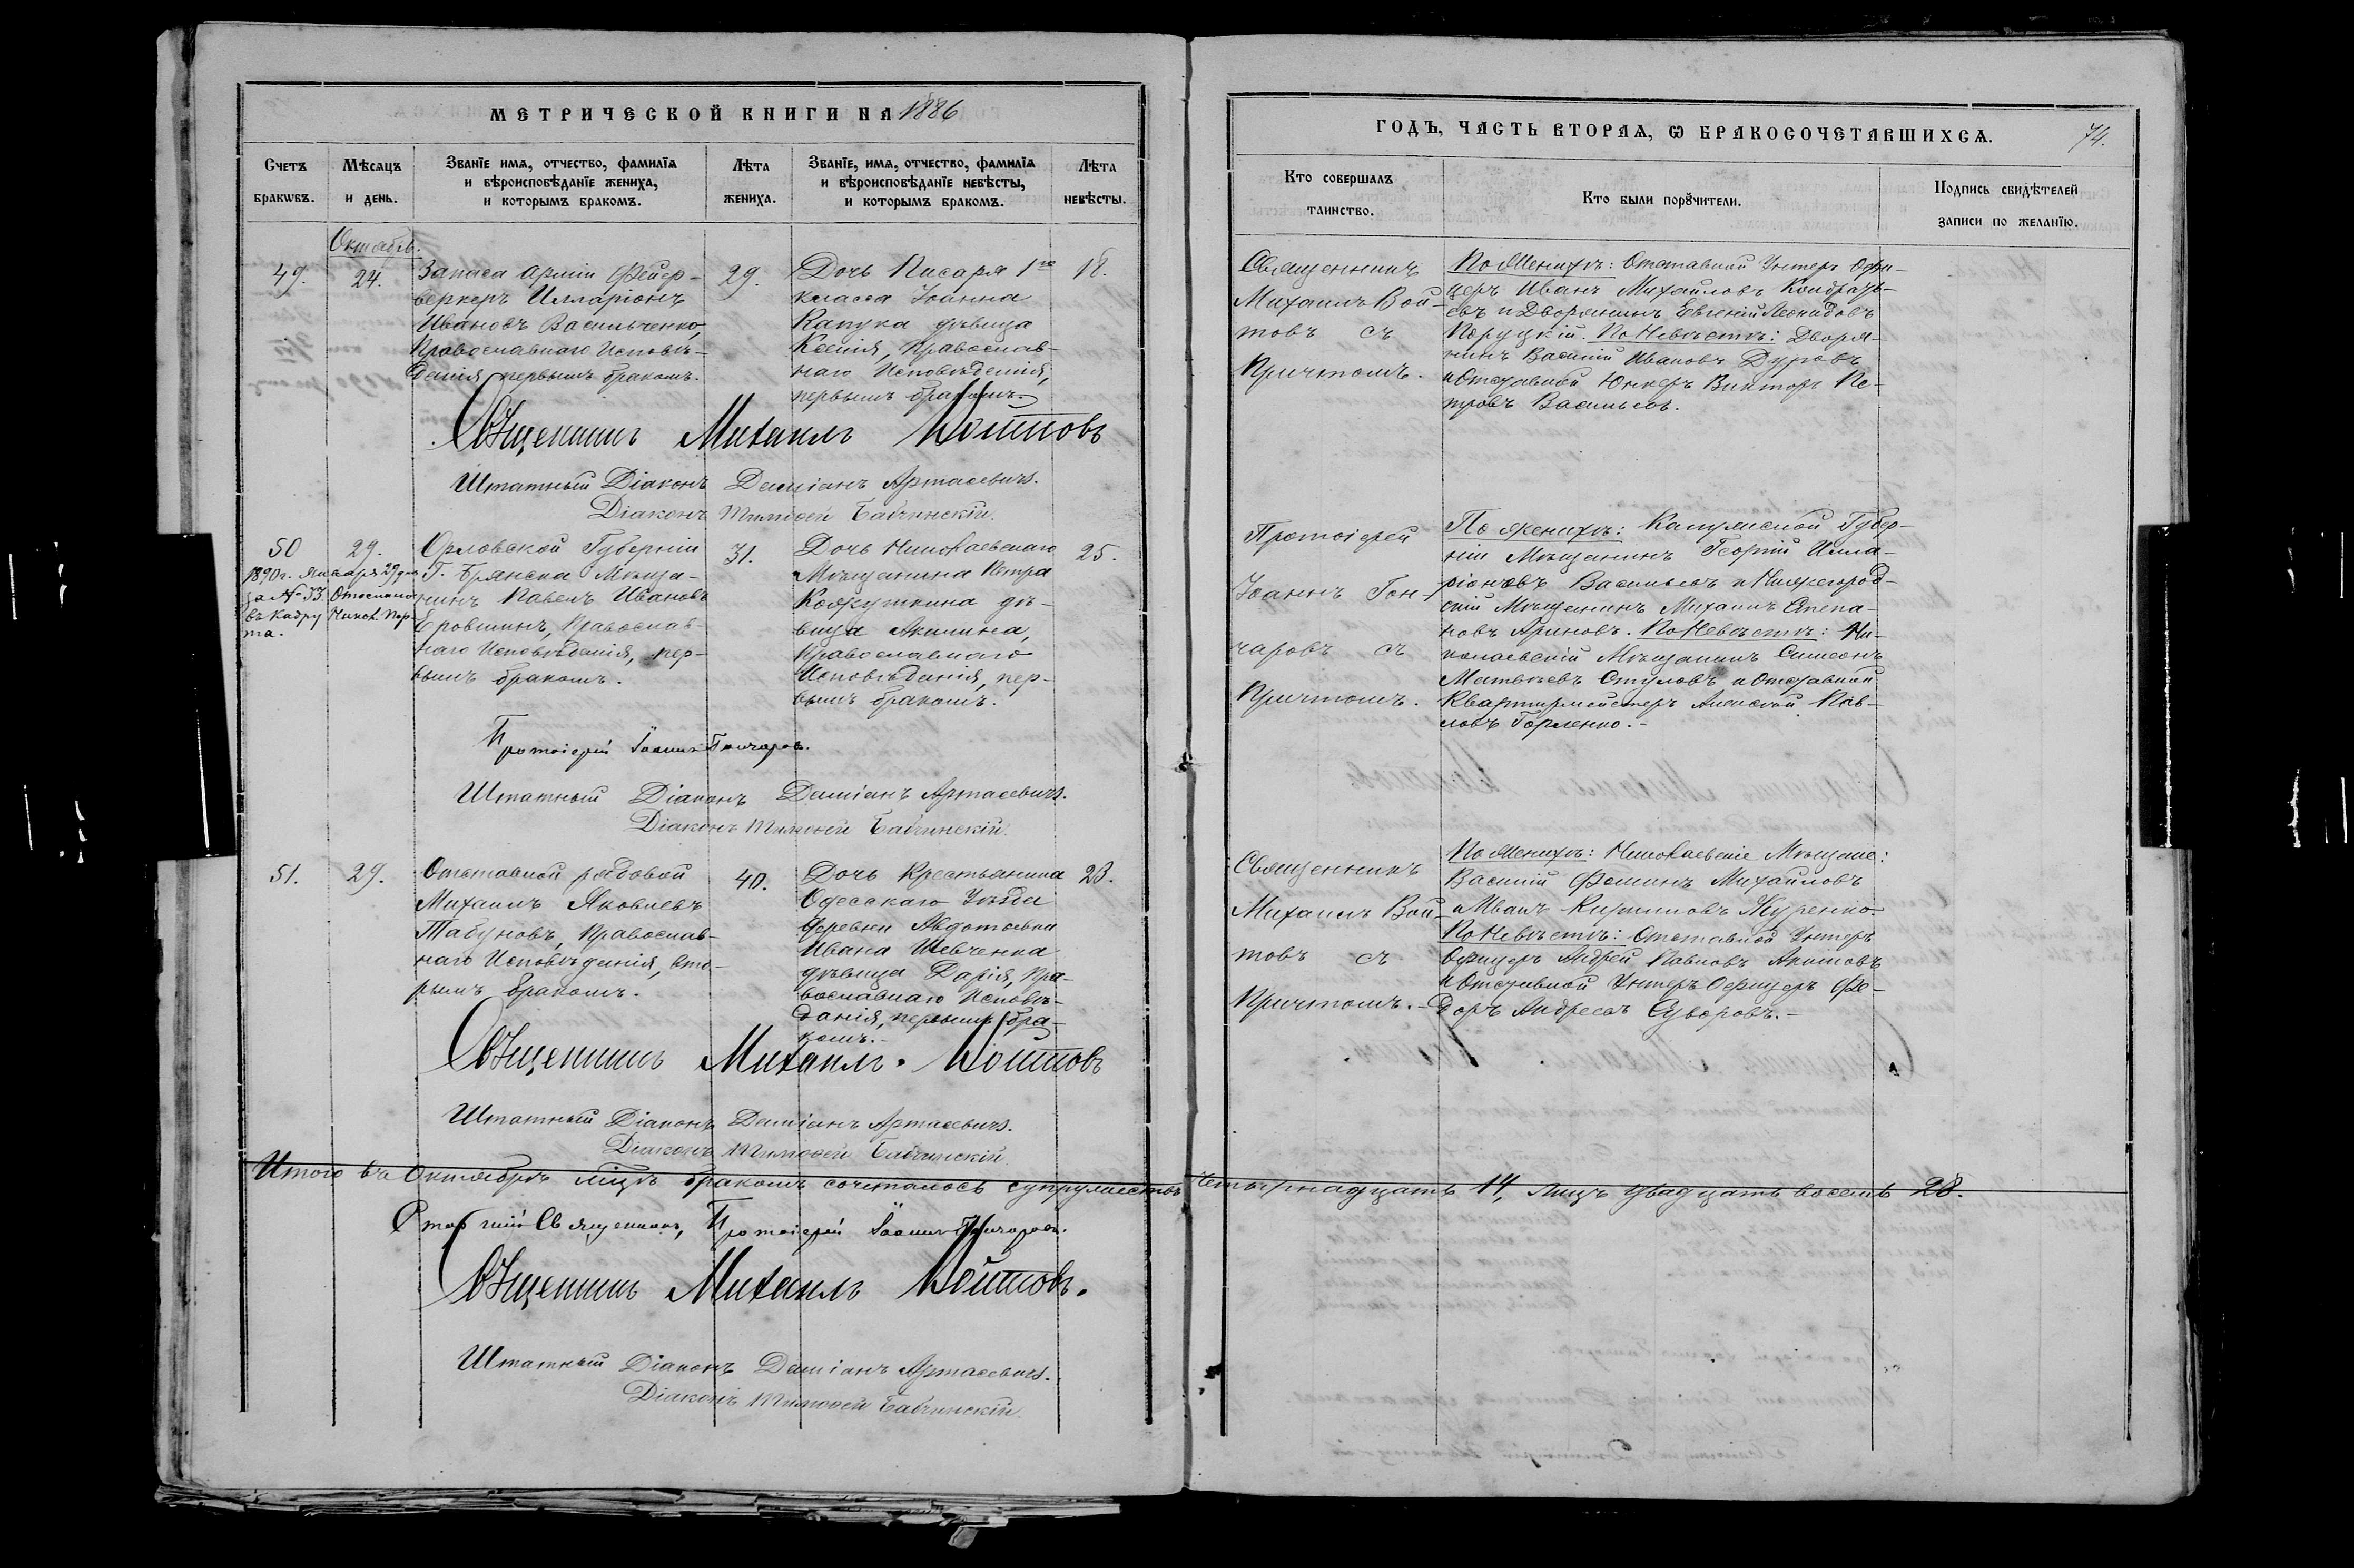 МЕТРИЧЕСКОЙ КНИГИ НА 1886
Счетъ браковъ.
Мѣсяцъ и день.
Званїе имя, отчество, фамилїя
и вѣроисповѣданїе жениха,
и которымъ бракомъ.
Лѣта жениха.
Званїе, имя, отчество, фамилїя
и вѣроисповѣданїе невѣсты,
и которымъ бракомъ.
Лѣта невѣсты.
Октябрь.
49.
24.
Запаса Арміи Фейер-
веркеръ Илларіонъ
Ивановъ Васильченко,
Православнаго Исповѣ-
данія, первымъ бракомъ.
29.
Дочь Писаря 1го
класса Іоанна
Капука дѣвица
Ксенія, Православ-
наго Исповѣданія,
первымъ бракомъ.
18.
Священникъ Михаилъ Войтовъ
Штатный Діаконъ Даміанъ Артасевичъ.
Діаконъ Тимоѳей Бабчинскій.
50
29.
1890г. Января 29 дня
за № 53 Отослано
въ Кадру Никол. Пор-
та.
Орловской Губерніи
Г. Брянска Мѣща-
нинъ Павелъ Ивановъ
Еровшинъ, Православ-
наго Исповѣданія, пер-
вымъ бракомъ.
31.
Дочь Николаевскаго
Мѣщанина Петра
Кожушкина дѣ-
вица Акилина,
Православнаго
Исповѣданія, пер-
вымъ бракомъ.
25.
Протоіерей Іоаннъ Гончаровъ.
Штатный Діаконъ Даміанъ Артасевичъ.
Діаконъ Тимоѳей Бабчинскій.
51.
29.
Отставной рядовой
Михаилъ Яковлевъ
Табуновъ, Православ-
наго Исповѣданія, вто-
рымъ бракомъ.
40.
Дочь Крестьянина
Одесскаго Уѣзда
деревни Авдотьевки
Ивана Шевченка
дѣвица Дарія, Пра-
вославнаго Исповѣ-
данія, первымъ бра-
комъ.-
23.
Священникъ Михаилъ Войтовъ
Штатный Діаконъ Даміанъ Артасевичъ.
Діаконъ Тимоѳей Бабчинскій
Итого въ Октябрѣ мѣцѣ бракомъ сочеталось супружествъ четырнадцать 14, лицъ двадцать восемь 28.
Старшій Священникъ, Протоіерей Іоаннъ Гончаровъ.
Священникъ Михаилъ Войтовъ.
Штатный Діаконъ Даміанъ Артасевичъ.
Діаконъ Тимоѳей Бабчинскій.
ГОДЪ, ЧАСТЬ ВТОРАЯ, Ѡ БРАКОСОЧЕТАВШИХСЯ.
74.
Кто совершалъ таинство.
Кто были порꙋчители.
Подпись свидѣтелей
записи по желанїю.
Священникъ
Михаилъ Вой-
товъ съ
Причтомъ.
По Женихѣ: Отставной Унтеръ Офи-
церъ Иванъ Михайловъ Кондрать-
евъ и Дворянинъ Евгеній Леонидовъ
Поруцкій. По Невѣстѣ: Дворя-
нинъ Василій Ивановъ Дуровъ
и Отставной Юнкеръ Викторъ Пе-
тровъ Васильевъ.
Протоіерей
Іоаннъ Гон-
чаровъ съ
Причтомъ.
По женихѣ: Калужской Губер-
ніи Мѣщанинъ Георгій Илла-
ріоновъ Васильевъ и Нижегород-
скій Мѣщанинъ Михаилъ Степа-
новъ Ариновъ. По Невѣстѣ: Ни-
колаевскій Мѣщанинъ Симеонъ
Матвѣевъ Стуловъ и Отставной
Квартирмейстеръ Алексѣй Пав-
ловъ Горленко.-
Священникъ
Михаилъ Вой-
товъ съ
Причтомъ.-
По Женихѣ: Николаевскіе Мѣщане:
Василій Фоминъ Михайловъ
и Иванъ Кирилловъ Журенко.
По Невѣстѣ: Отставной Унтеръ
Офицеръ Андрей Павловъ Акимовъ
и Отставной Унтеръ Офицеръ Фе-
доръ Андреевъ Суворовъ.-